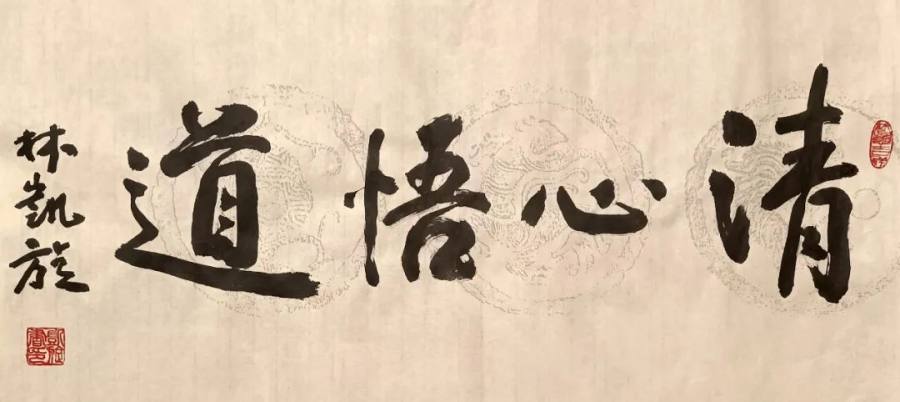 清心悟道
林凯旋